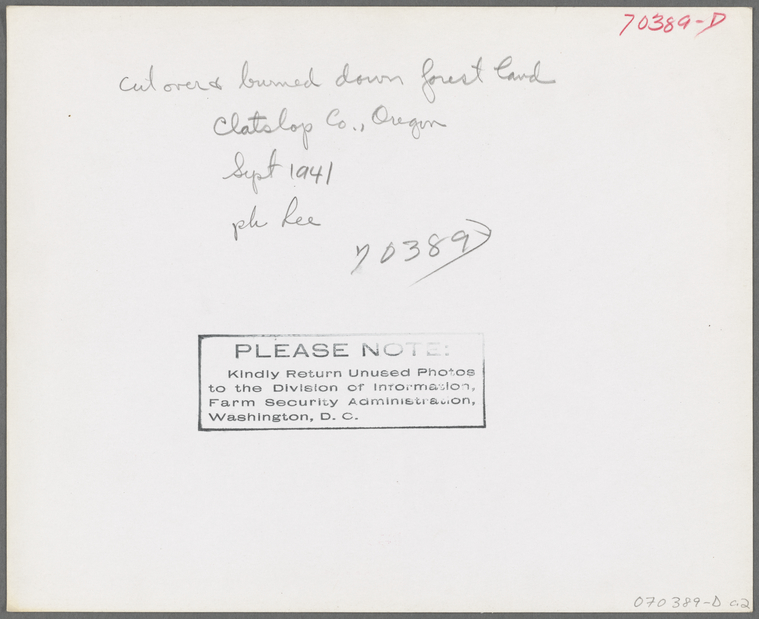 70389-D
cut over & burned down forest land
Clatslop Co., Oregon
Sept 1941
ph Lee
70389D
PLEASE NOTE:
Kindly Return Unused Photos
to the Division of Information,
Farm Security Administration,
Washington, D. C.
070389-D c.2